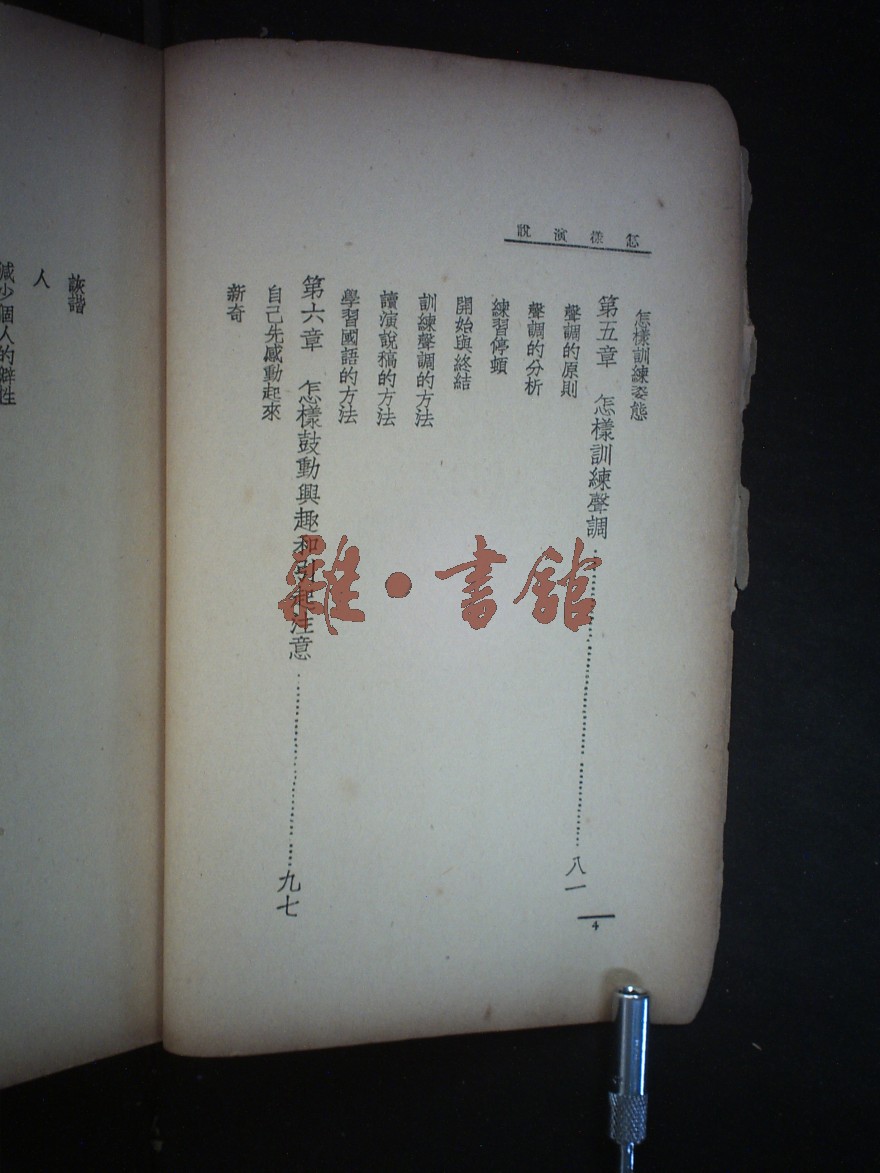 怎樣演說
怎樣訓練姿態
第五章 怎樣訓練聲調……八一
聲調的原則
聲調的分析
練習停頓
開始與終結
訓練聲調的方法
讀演說稿的方法
學習國語的方法
第六章 怎樣鼓動興趣和引起注意……九七
自己先感動起來
新奇
4
詼諧
人
減少個人的癖性
雜·書館